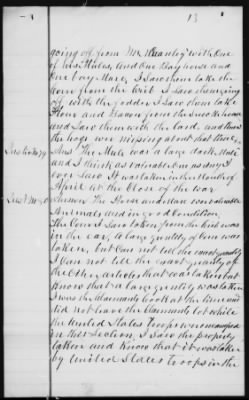 13
going off from Mr Stanley with One
of his Mules, and One Bay horse and
One bay Mare, I Saw them take the
Corn from the Crib I Saw them going
off with the fodder I Saw them take
Flour and Bacon from the Smoke house
and Saw them with the lard, and there
the hogs were Missing about that time.
Ans The Mule was a large dark Mule
and I think as valuable Mule as
ever Saw It was taken in the Month of
April at the Close of the war
Answer The Horse and Mare were valuable
Animals and in good Condition,
The Corn I Saw taken from the Crib was
in the ear, a large quantity of Corn was
taken, but Can not tell the exact quantity
I Can not tell the exact quantity of
the Other articles that was taken but
Know that a large quantity was taken
I was the Claimants Cook at the time and
did not leave the Claimants lot while
the United States Troops were encamped
in this Section, I Saw the property
taken and Know that it was taken
by United States Troops in the